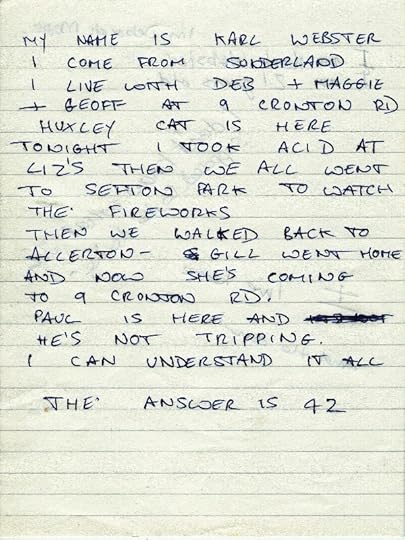 MY NAME IS KARL WEBSTER
I COME FROM SUNDERLAND
I LIVE WITH DEB + MAGGIE
+ GEOFF AT 9 CRONTON RD
HUXLEY CAT IS HERE
TONIGHT I TOOK ACID AT
LIZ'S THEN WE ALL WENT
TO SEFTON PARK TO WATCH
THE FIREWORKS
THEN WE WALKED BACK TO
ALLERTON - GILL WENT HOME
AND NOW SHE'S COMING
TO 9 CRONTON RD.
PAUL IS HERE AND
HE'S NOT TRIPPING.
I CAN UNDERSTAND IT ALL
THE ANSWER IS 42